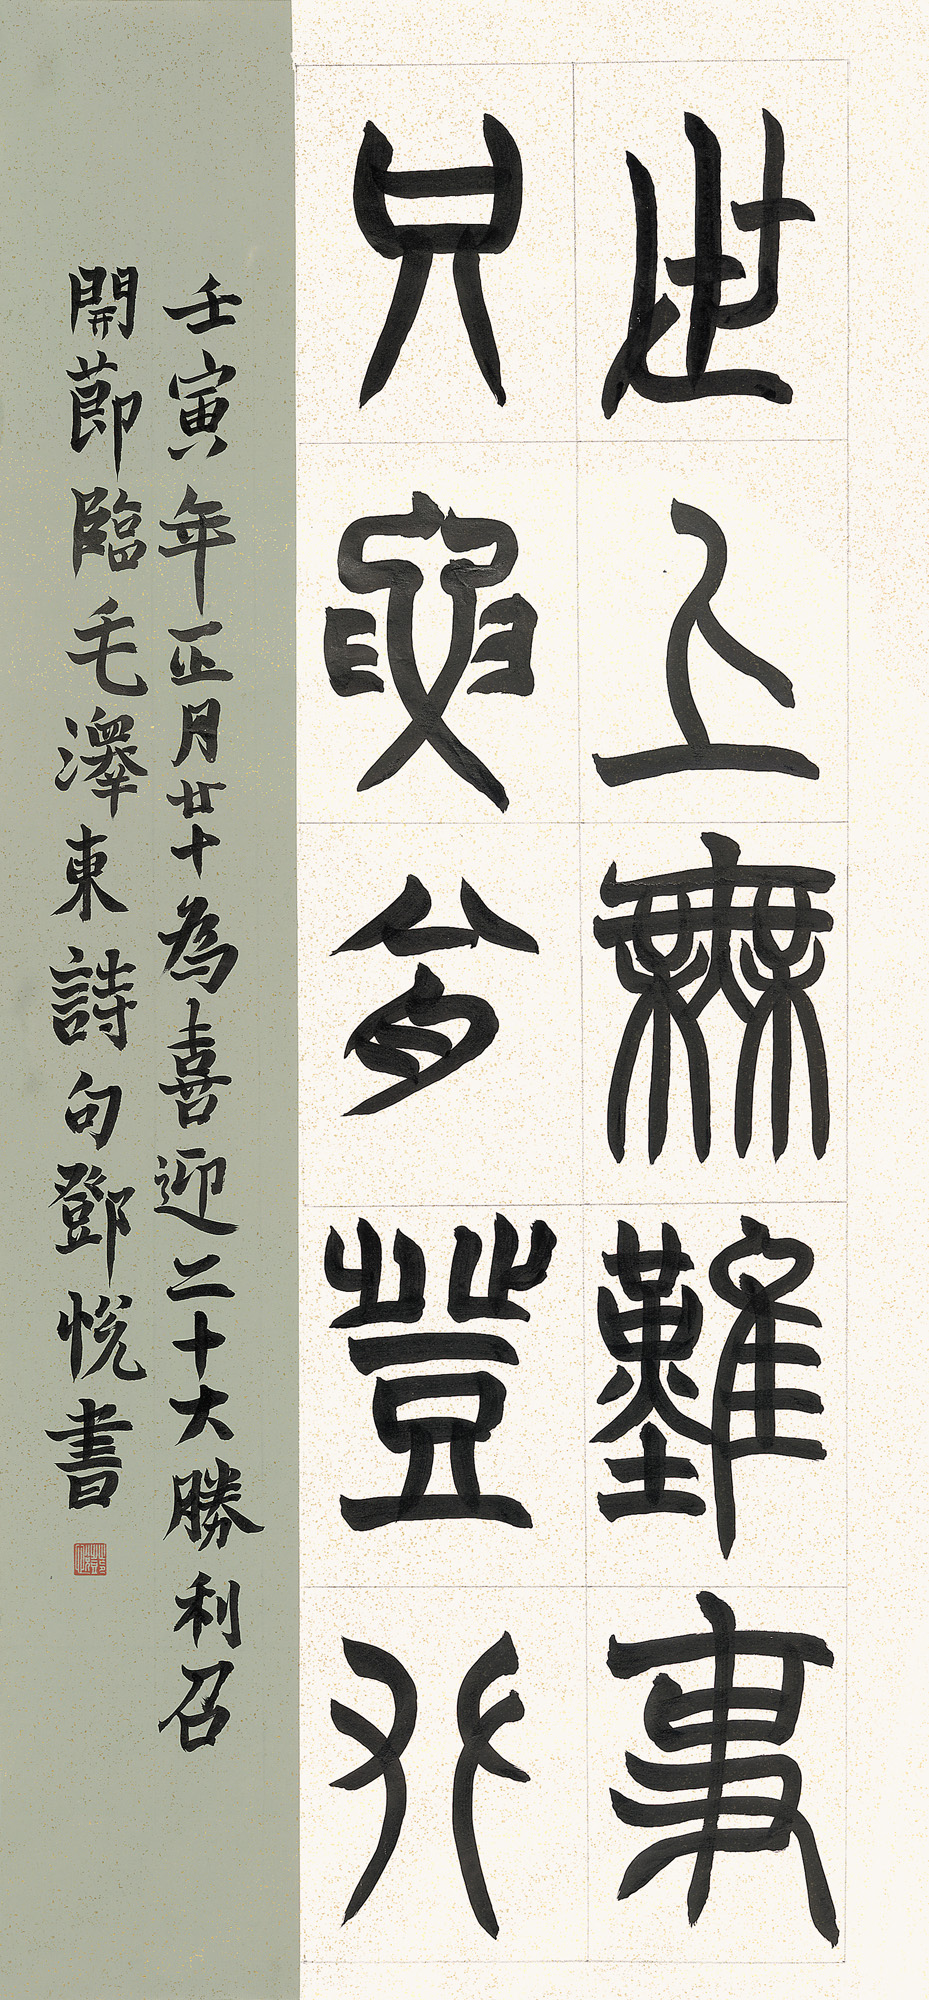 世上無難事
只要肯登攀
壬寅年正月廿十為喜迎二十大勝利召
開莭臨毛澤東詩句鄧悅書